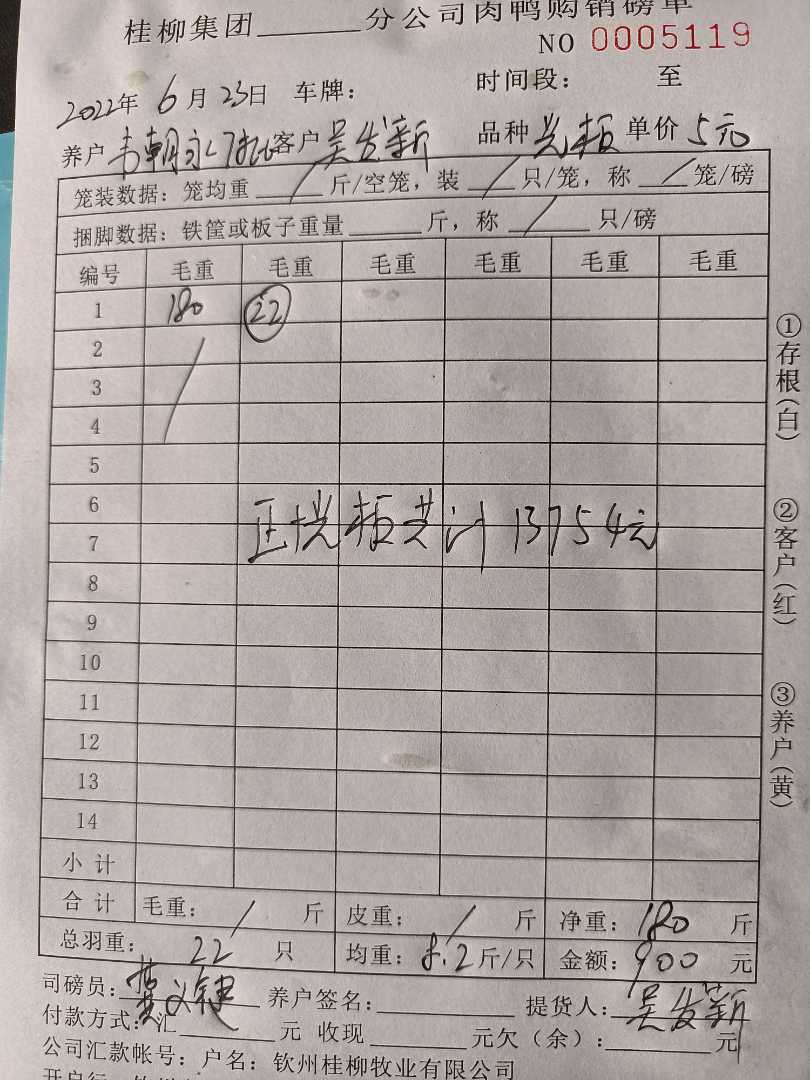 桂柳集团______分公司肉鸭购销磅单
NO 0005119
2022年 6月 23日 车牌： 时间段： 至
养户 韦朝永 客户 吴发新 品种 光板 单价 5元
笼装数据：笼均重 / 斤/空笼，装 / 只/笼，称 / 笼/磅
捆脚数据：铁筐或板子重量______斤，称 / 只/磅
编号 毛重 毛重 毛重 毛重 毛重 毛重
1 180 22
2 /
3
4
5
6
7
正 光板共计13754元
8
9
10
11
12
13
14
小 计
合 计 毛重： / 斤 皮重： / 斤 净重：180 斤
总羽重： 22 只 均重：8.2斤/只 金额：900 元
司磅员： 义键 养户签名：______ 提货人：吴发新
付款方式：汇______元 收现______元欠（余）：______元
公司汇款帐号：户名：钦州桂柳牧业有限公司
开户行
①存根(白)
②客户(红)
③养户(黄)